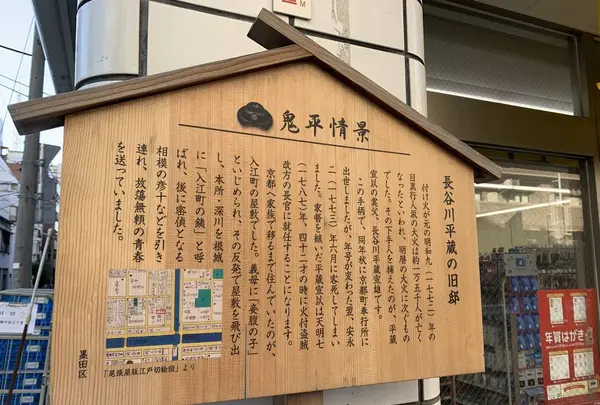 鬼平情景
長谷川平蔵の旧邸
付け火が元の明和九(一七七二)年の
目黒行人坂の大火は約一万五千人が亡く
なったといわれ、明暦の大火に次ぐもの
でした。その下手人を捕えたのが、平蔵
宣以の実父、長谷川平蔵宣雄です。
この手柄で、同年秋に京都町奉行所に
出世しましたが、年号が変わった翌、安永
二(一七七三)年六月に客死してしまい
ました。家督を継いだ平蔵宣以は天明七
(一七八七)年、四十二才の時に火付盗賊
改方の長官に就任することになります。
京都へ家族で移るまで住んでいたのが、
入江町の屋敷でした。義母に「妾腹の子」
といじめられ、その反発で屋敷を飛び出
し、本所・深川を根城
に「入江町の銕」と呼
ばれ、後に密偵となる
相模の彦十などを引き
連れ、放蕩無頼の青春
を送っていました。
「尾張屋版江戸切絵図」より
墨田区
年賀はがき
M